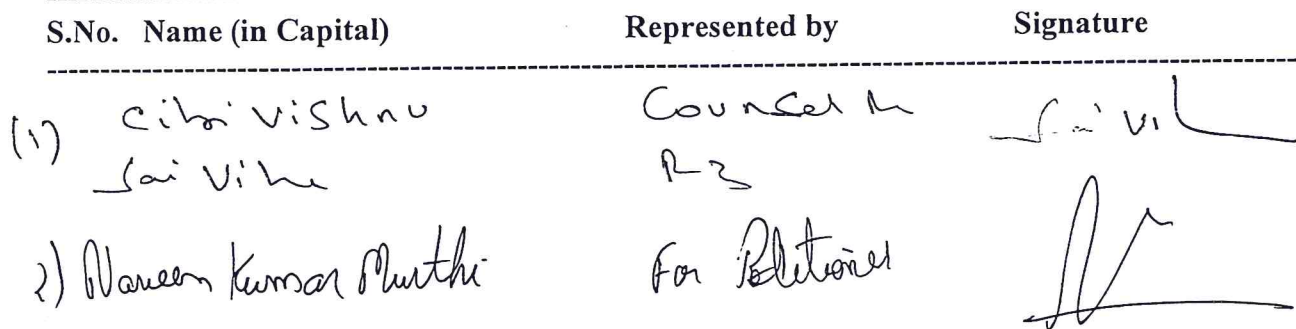 S.No. Name (in Capital) Represented by Signature
(1) Cibi Vishnu Counsel
Sai R3
2) Naveen Kumar Murthi For Petitioner